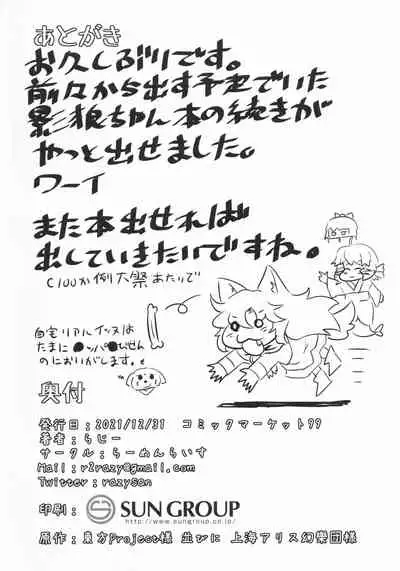 あとがき
お久しぶりです。
前々から出す予定でいた
影狼ちゃん本の続きが
やっと出せました。
ワーイ
また本出せれば
出していきたいですね。
C100か例大祭あたりで
自宅リアルイッヌは
たまに●ッパ●びせん
のにおいがします。
奥付
発行日:2021/12/31 コミックマーケット99
著者:らじー
サークル:らーめんらいす
Mail:r2razy@gmail.com
Twitter:razysan
印刷: SUN GROUP
http://www.sungroup.co.jp/
原作:東方Project様 並びに 上海アリス幻樂団様